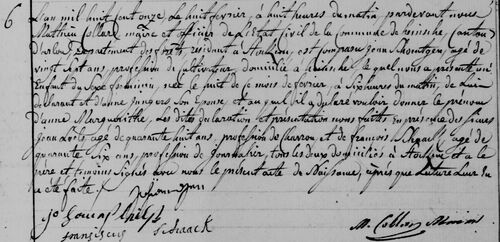 6
L'an mil huit cent onze, le huit fevrier, à huit heures du matin, pardevant nous
Mathieu Collard maire et officier de L'Etat Civil de la Commune de canton
d'arlon, Département des forêts résidant à est comparu jean age de
vingt Sept ans, profession de cultivateur, domicilié à lequel nous a présenté un
Enfant du Sexe feminin, née le huit de ce mois de fevrier, à Six heures du matin, de Lui
declarant et d'anne Son Epouse, et auquel il a declaré vouloir donner le prenom
d'anne Margueritte, Les dites déclaration et présentation nous faites En présence des Sieurs
jean agé de quarante huit ans, profession de charron, et de francois Schaack agé de
quarante Six ans, profession de journalier, tous les deux domiciliés à et a le
père et temoins Signés avec nous le présent acte de Naissance, après que Lecture Leur
en eté faite.
franziscus Schaack
M. Collard